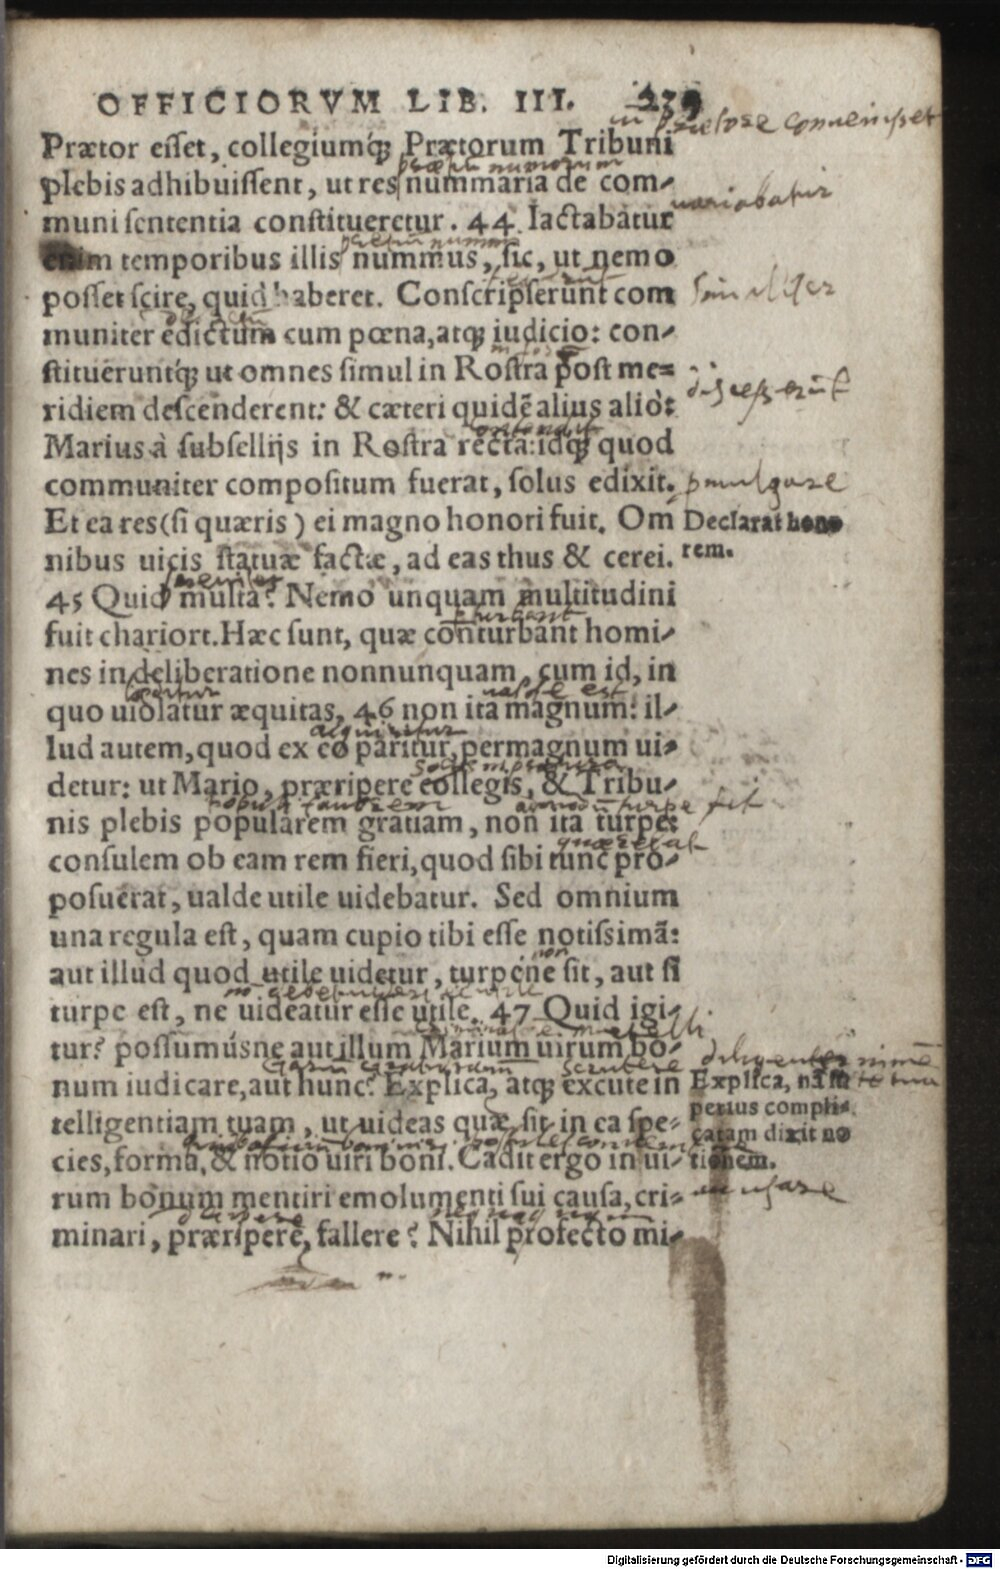 OFFICIORVM LIB. III. 239
Prætor esset, collegiumq́; Prætorum Tribuni
plebis adhibuissent, ut res nummaria de com-
uariabatur
muni sententia constitueretur. 44 Iactabatur
enim temporibus illis nummus, sic, ut nemo
similiter
posset scire, quid haberet. Conscripserunt com
muniter edictum cum pœna, atq; iudicio: con-
stitueruntq́; ut omnes simul in Rostra post me-
discesserūt
ridiem descenderent: & cæteri quidē alius aliò:
Marius à subsellijs in Rostra recta: idq; quod
communiter compositum fuerat, solus edixit.
pmulgare
Et ea res (si quæris) ei magno honori fuit. Om
Declarat hono
nibus uicis statuæ factæ, ad eas thus & cerei.
rem.
45 Quid multa? Nemo unquam multitudini
pturbant
fuit chariort. Hæc sunt, quæ conturbant homi-
nes in deliberatione nonnunquam, cum id, in
quo uiolatur æquitas, 46 non ita magnum: il-
lud autem, quod ex eo paritur, permagnum ui-
detur: ut Mario, præripere collegis, & Tribu-
nis plebis popularem gratiam, non ita turpe:
quærebat
consulem ob eam rem fieri, quod sibi tunc pro-
posuerat, ualde utile uidebatur. Sed omnium
una regula est, quam cupio tibi esse notissimā:
non
aut illud quod utile uidetur, turpe ne sit, aut si
turpe est, ne uideatur esse utile. 47 Quid igi-
tur? possumúsne aut illum Marium uirum bo-
num iudicare, aut hunc? Explica, atq; excute in
Explica, nā su
telligentiam tuam, ut uideas quæ sit in ea spe-
perius compli-
catam dixit no
cies, forma, & notio uiri boni. Cadit ergo in ui-
tionem.
rum bonum mentiri emolumenti sui causa, cri-
minari, præripere, fallere? Nihil profecto mi-
Digitalisierung gefördert durch die Deutsche Forschungsgemeinschaft - DFG